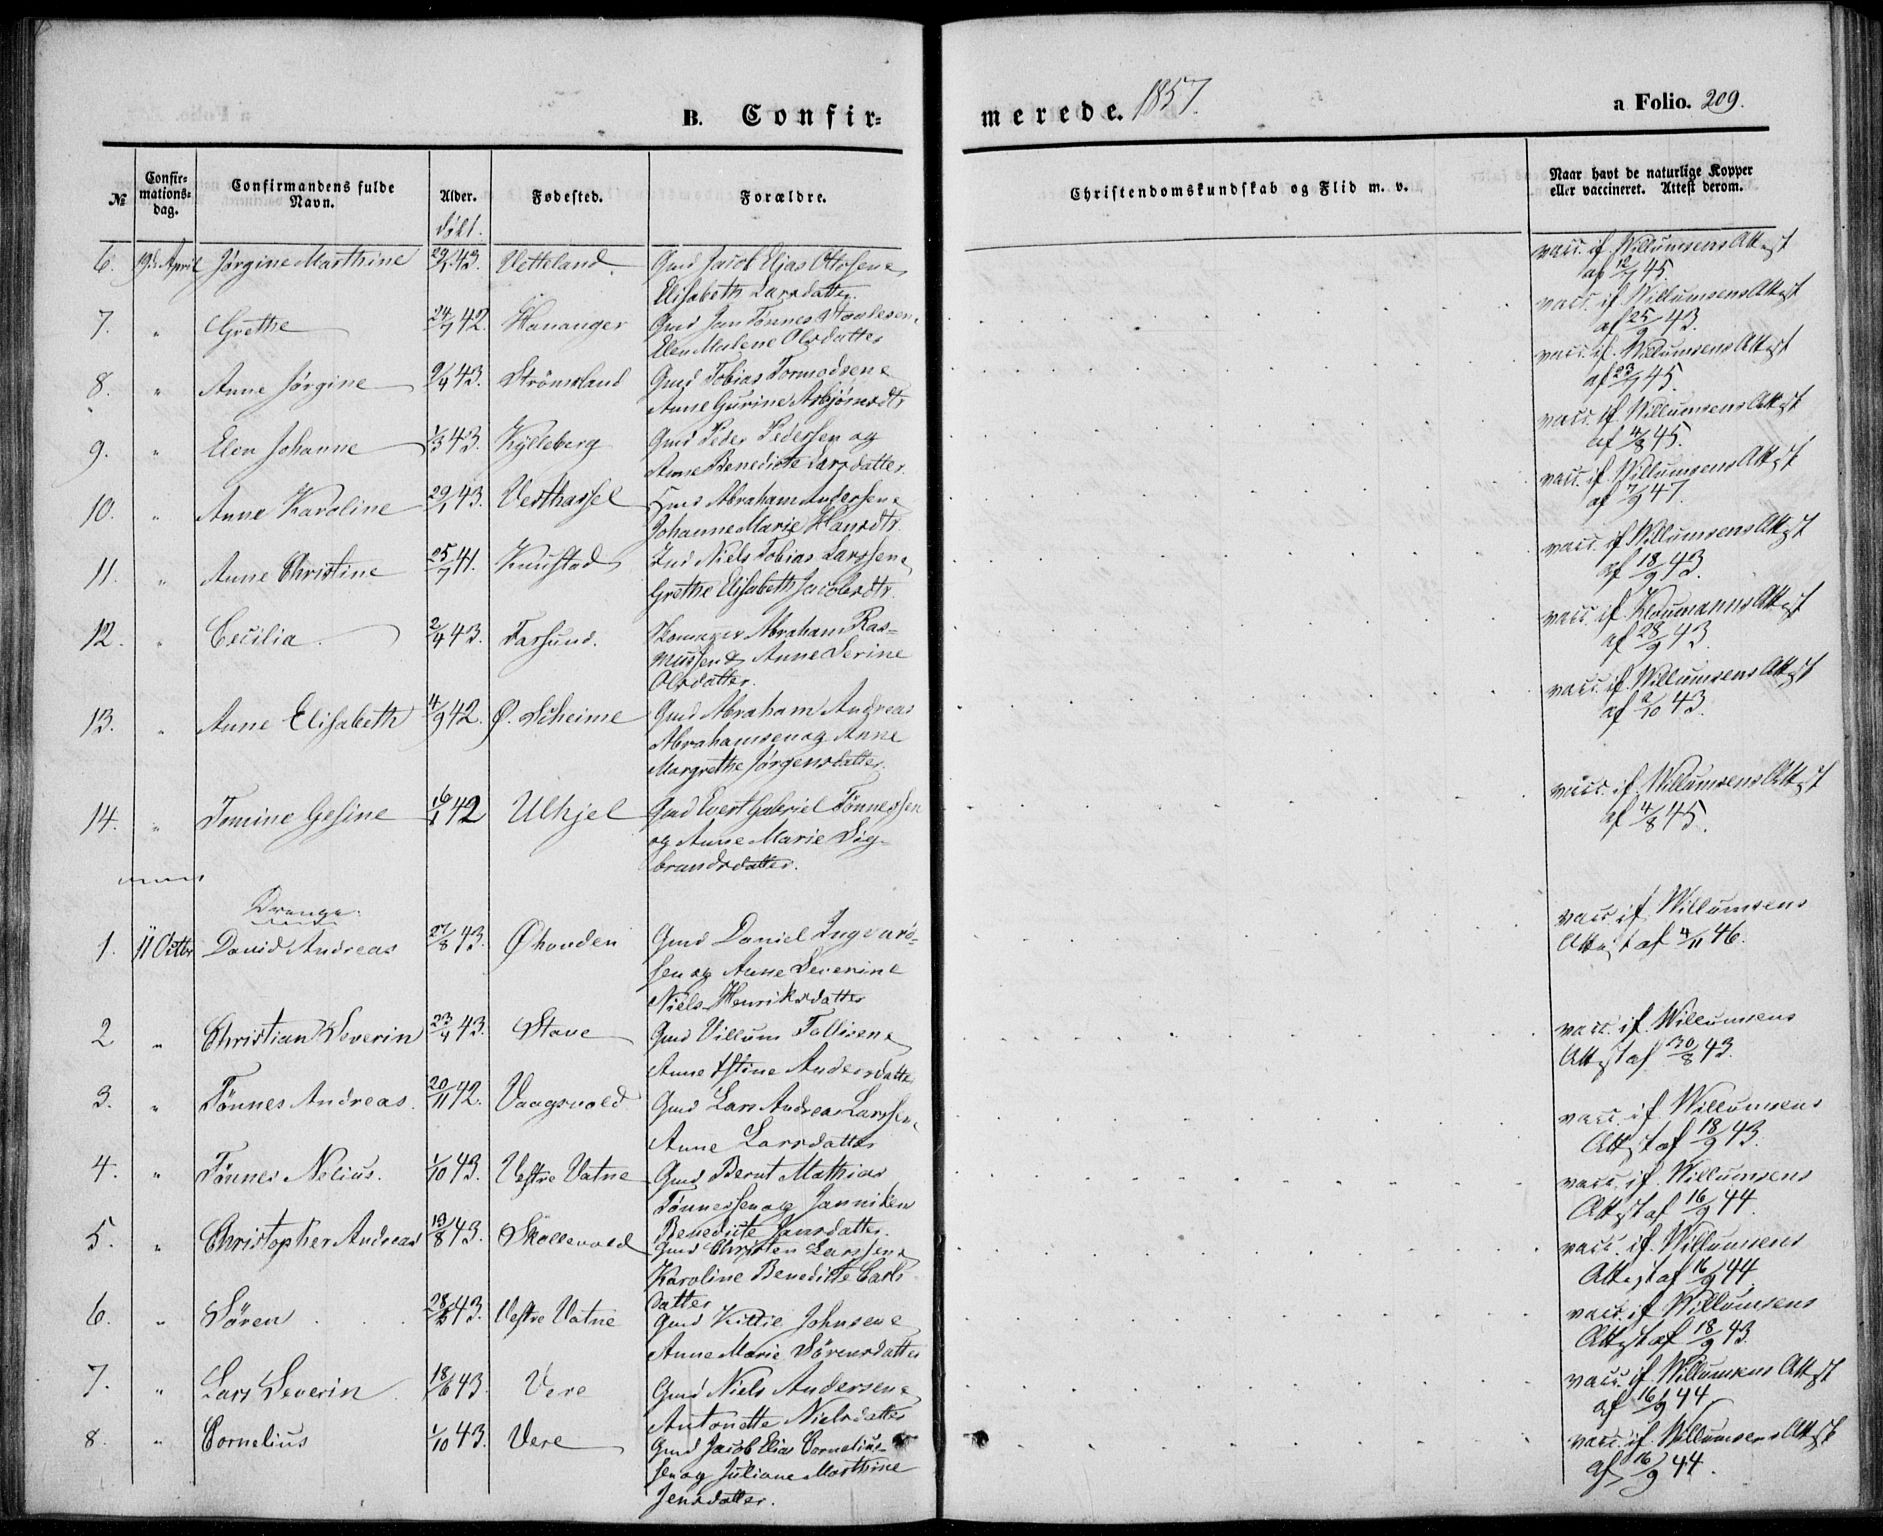 B. Confir-
merede. 1857.
a Folio. 209.
№
Confir-
mations-
dag.
Confirmandens fulde
Navn.
Alder.
Fødested.
Forældre.
Christendomskundskab og Flid m. v.
Naar havt de naturlige Kopper
eller vaccineret. Attest derom.
døbt.
6. 19de April Jørgine Marthine 29/1 43. Vetteland. Gmd Jacob Elias Ottosen
Elisabeth Larsdatter. vacc. if. Willumsens Attest
af 12/9 45.
7. " Grethe 24/7 42 Hananger Gmd Jan Tønnes Staalesen
Elen Malene Olsdatter vacc. if. Willumsens Attest
af 25/9 43.
8. " Anne Jørgine 9/4 43. Strömsland Gmd Tobias Tormodsen
Anne Gurine Asbjørnsdtr vacc. if. Willumsens Attest
af 23/9 45.
9. " Elen Johanne 1/3 43. Kylleberg Gmd Peder Pedersen og
Anne Benedicte Larsdatter vacc. if Willumsens Attest
af 4/8 45.
10. " Anne Karoline 29/1 43. Vesthassel Gmd Abraham Andersen
Johanne Marie Hansdtr. vacc. if. Willumsens Attest
af 7/9 47.
11. " Anne Christine 25/7 41. Knustad Ind Niels Tobias Larssen
Grethe Elisabeth Jacobsdtr. vacc. if Willumsens Attest
af 18/9 43.
12. " Cecilia 2/4 43. Farsund. Skomager Abraham Ras-
mussen & Anne Serine
Olsdatter. vacc. if. Kloumanns Attest
af 28/9 43.
13. " Anne Elisabeth 4/9 42. Ø. Skeime Gmd Abraham Andreas
Abrahamsen og Anne
Margrethe Jørgensdatter vacc. if. Willumsens Attest
af 2/10 43.
14. " Tomine Gesine 16/1 42 Ulhjel Gmd Evert Gabriel Tönnessen
og Anne Marie Sig-
brandsdatter. vacc. if. Willumsens Attest
af 4/8 45.
Drenge.
1. 11 Octbr David Andreas 27/8 43. Øhouden Gmd Daniel Ingvars-
sen og Anne Severine
Niels Henriksdatter vacc. if. Willumsens
Attest af 4/11 46.
2 " Christian Severin 23/4 43. Stave Gmd Villum Tollisen
Anne Stine Andersdatter vacc. if. Willumsens
Attest af 30/8 43.
3. " Tönnes Andreas. 20/11 42. Vaagsvold Gmd Lars Andreas Larssen
Anne Larsdatter vacc. if. Willumsens
Attest af 18/9 43.
4. " Tönnes Nelius. 1/10 43. Vestre Vatne Gmd Bernt Mathias
Tönnessen og Janniken
Benedicte Jansdatter. vacc. if. Willumsens
Attest af 16/9 44.
5. " Christopher Andreas 13/8 43. Skollevold Gmd Christen Larssen
Karoline Benedicte Carls
datter vacc. if. Willumsens
Attest af 16/9 44.
6. " Sören 43. Vestre Vatne Gmd Kittil Johnsen
Anne Marie Sörensdatter vacc. if. Willumsens
Attest af 18/9 43.
7. " Lars Severin 18/6 43 Vere Gmd Niels Andersen
Antonette Nielsdatter vacc. if. Willumsens Attest
af 16/9 44
8. " Cornelius 1/10 43. Vere Gmd Jacob Elias Cornelius-
sen og Juliane Marthine
Jensdatter. vacc. if. Willumsens Attest
af 16/9 44.